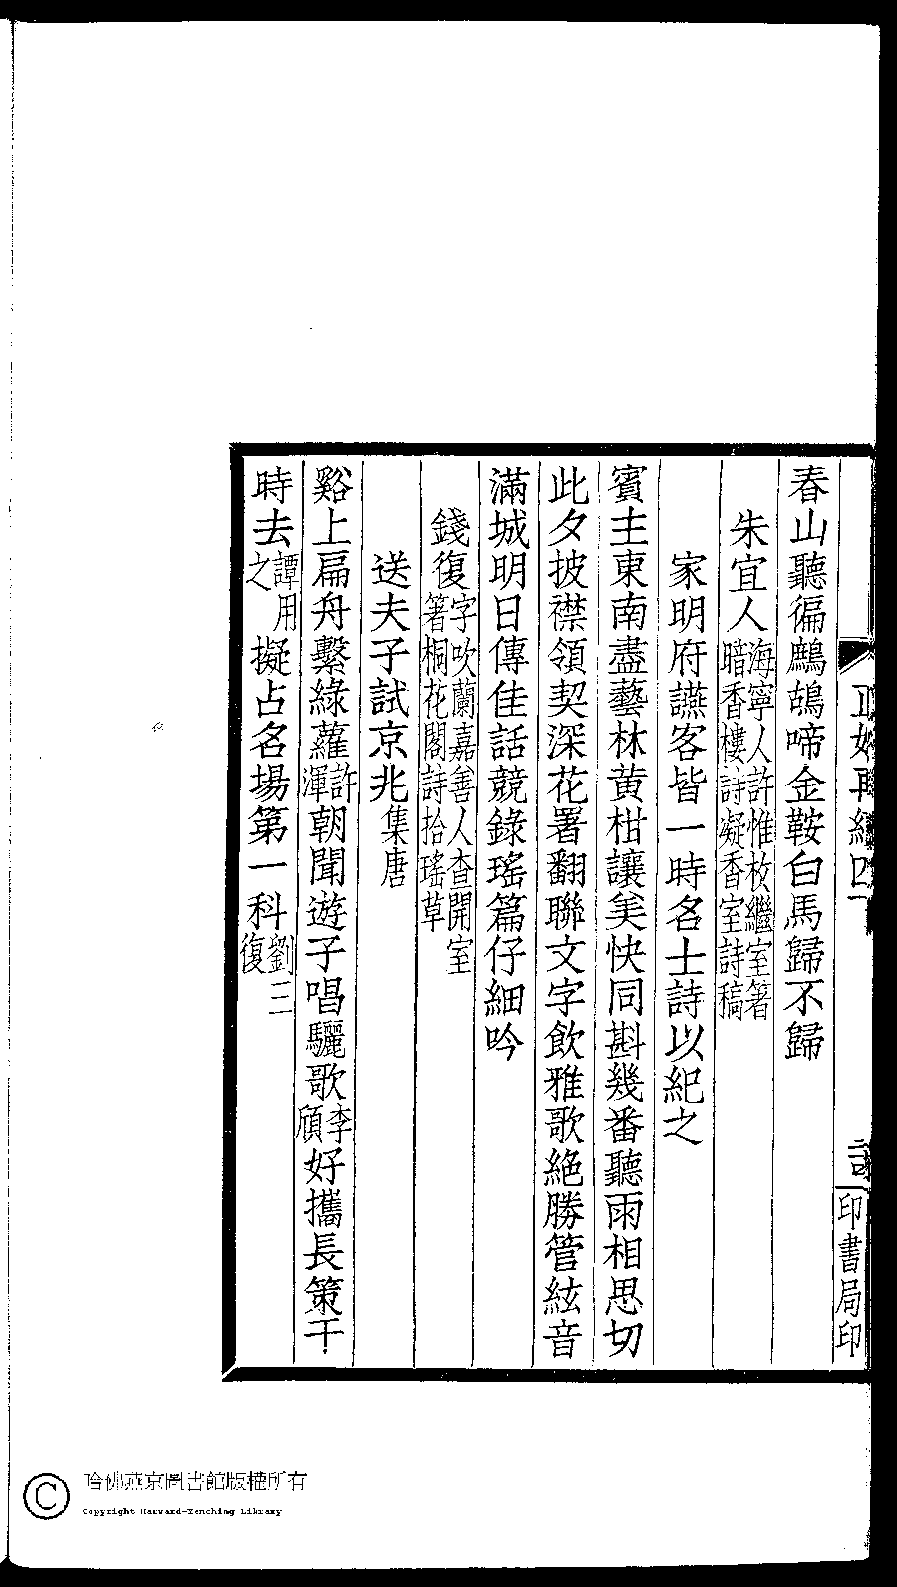 印書局印
春山聽徧鷓鴣啼金鞍白馬歸不歸
朱宜人海寧人許惟枚繼室箸暗香樓詩凝香室詩稿
家明府讌客皆一時名士詩以紀之
賓主東南盡藝林黃柑讓美快同斟幾番聽雨相思切
此夕披襟領契深花署翻聯文字飲雅歌絕勝管絃音
滿城明日傳佳話競錄瑤篇仔細吟
錢復字吹蘭嘉善人查開室箸桐花閣詩拾瑤草
送夫子試京兆集唐
谿上扁舟繫綠蘿許渾朝聞遊子唱驪歌李頎好攜長策干
時去譚用之擬占名場第一科劉三復
哈佛燕京圖書館版權所有
Copyright Harvard-Yenching Library